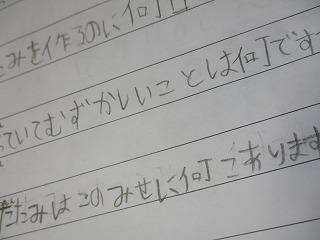 たみを作るのに何
ていてむずかしいことは何ですか
だたみはこのみせに何こあります